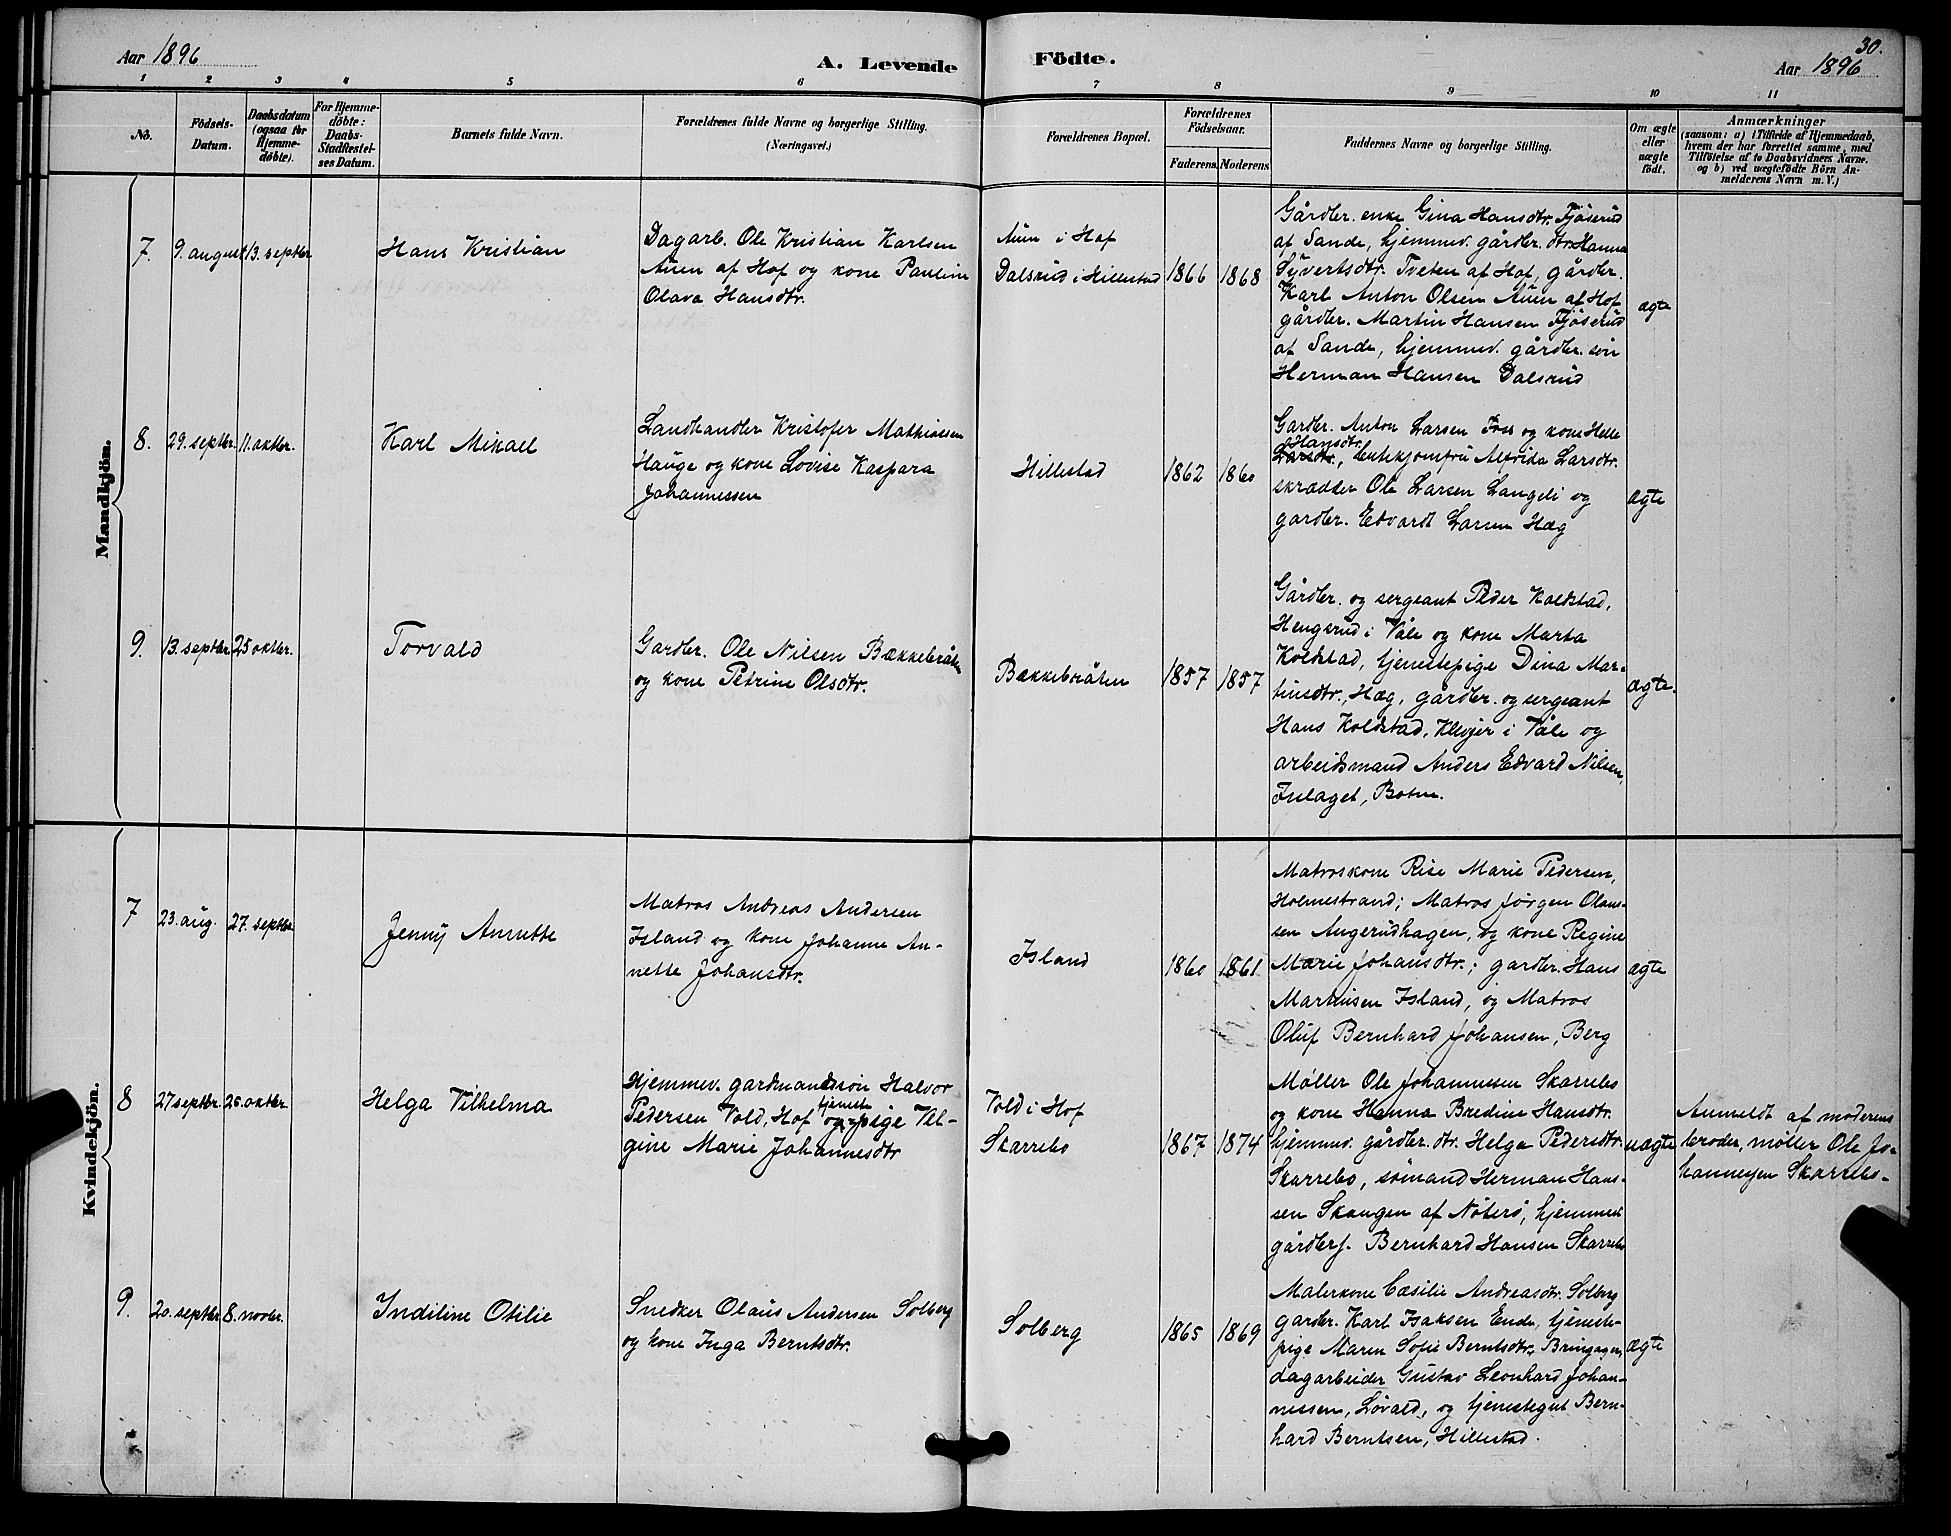 Aar 1896
A. Levende
Födte.
30.
Aar 1896
1 2 3 4 5 6 7 8 9 10 11
No.
Födsels-
Datum.
Daabsdatum
(ogsaa for
Hjemme-
döbte).
For Hjemme-
döbte:
Daabs-
Stadfæstel-
ses Datum.
Barnets fulde Navn.
Forældrenes fulde Navne og borgerlige Stilling.
(Næringsvei.)
Forældrenes Bopæl.
Forældrenes
Födselsaar.
Faderens. Moderens.
Faddernes Navne og borgerlige Stilling.
Om ægte
eller
uægte
födt.
Anmærkninger
(saasom: a) i Tilfælde af Hjemmedaab,
hvem der har forrettet samme, med
Tilföielse af to Daabsvidners Navne.
og b) ved uægtefödte Börn An-
melderens Navn m. V.)
Mandkjön.
7.
9. august
13. septbr.
Hans Kristian
Dagarb. Ole Kristian Karlsen
Auen af Hof og kone Pauline
Olava Hansdtr.
Auen i Hof
Dalsrud i Hillestad
1866
1868
Gårdbr. enke Gina Hansdtr. Fjöserud
af Sande, hjemmev. gårdbr. dtr. Hanna
Syvertsdtr. Tveten af Hof, gårdbr.
Karl Anton Olsen Auen af Hof
gårdbr. Martin Hansen Fjöserud
af Sande, hjemmev. gårdbr. sön
Herman Hansen Dalsrud
ægte
8.
29. septbr.
11. oktbr.
Karl Mikael
Landhandler Kristofer Mathiassen
Hauge og kone Lovise Kaspara
Johannessen
Hillestad
1862
1860
Gardbr. Anton Larsen Foss og kone Helle
Hansdtr.
Larsdtr., butikjomfru Alfrida Larsdtr.
skrædder Ole Larsen Langeli og
gardbr. Edvardt Larsen Hæg
ægte
9.
13. septbr.
25 oktbr.
Torvald
Gardbr. Ole Nilsen Bækkebråten
og kone Petrine Olsdtr.
Bækkebråten
1857
1857
Gårdbr. og sergeant Peder Koldstad,
Hengsrud i Våle og kone Marta
Koldstad, tjenestepige Dina Mar-
tinsdtr., Hæg, gårdbr. og sergeant
Hans Koldstad, Klevjer i Våle og
arbeidsmand Anders Edvard Nilsen,
Inlaget, Botne.
ægte.
Kvindekjön.
7
23. aug.
27. septbr.
Jenny Annette
Matros Andreas Andersen
Island og kone Johanne An-
nette Johansdtr.
Island
1860
1861.
Matroskone Rise Marie Pedersen,
Holmestrand; Matros Jörgen Olaus-
sen Angerudhagen, og kone Regine
Marie Johansdtr.; gardbr. Hans
Martinsen Island, og Matros
Oluf Bernhard Johansen, Berg
ægte
8
27 septbr.
25. oktbr
Helga Vilhelma
Hjemmev. gardmandssön Halvor
Pedersen Vold, Hof og tjenestepige Vel-
gine Marie Johannesdtr
Vold i Hof
Skarrebo
1867
1874
Møller Ole Johannessen Skarrebo
og kone Hanna Bredine Hansdtr.
hjemmev. gårdbr. dtr. Helga Pedersdtr.
Skarrebo, sömand Herman Hans-
sen Skaugen af Nöterö, hjemmev.
gårdbrs. Bernhard Hansen Skarrebo
uægte
Anmeldt af moderens
broder, møller Ole Jo-
hannessen Skarrebo.
9.
20. septbr
8. novbr.
Indiline Otilie
Snedker Olaus Andersen Solberg
og kone Inga Berntsdtr.
Solberg
1865
1869
Malerkone Cæsilie Andreasdtr. Solberg
gardbr. Karl Isaksen Ende, tjeneste-
pige Maren Sofie Berntsdtr. Bringagen,
dagarbeider Gustav Leonhard Johan-
nessen, Lövald, og tjenestegut Bern-
hard Berntsen, Hillestad.
ægte